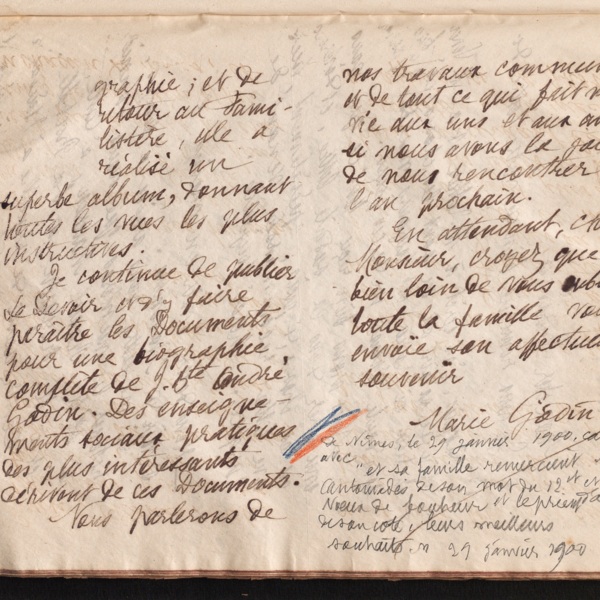 graphie ; et de
retour au Fami-
listère, elle a
réalisé un
superbe album, donnant
toutes les vues les plus
instructives.
Je continue de publier
Le Devoir et d'y faire
paraître les Documents
pour une biographie
complète de J. Bte André
Godin. Des enseigne-
ments sociaux pratiques
des plus intéressants
dérivent de ces Documents.
Nous parlerons de
nos travaux commun
et de tout ce qui fait
vie aux uns et aux au
si nous avons la joie
de nous rencontrer
l'an prochain.
En attendant, ch
Monsieur, croyez que
bien loin de vous oub
toute la famille vou
envoie son affectue
souvenir
Marie Godin
De Nîmes, le 29 janvier 1900,
avec
" et sa famille remercient
de son mot du 12 et
Vœux de bonheur et le prient
de son côté, leurs meilleurs
souhaits. 29 janvier 1900